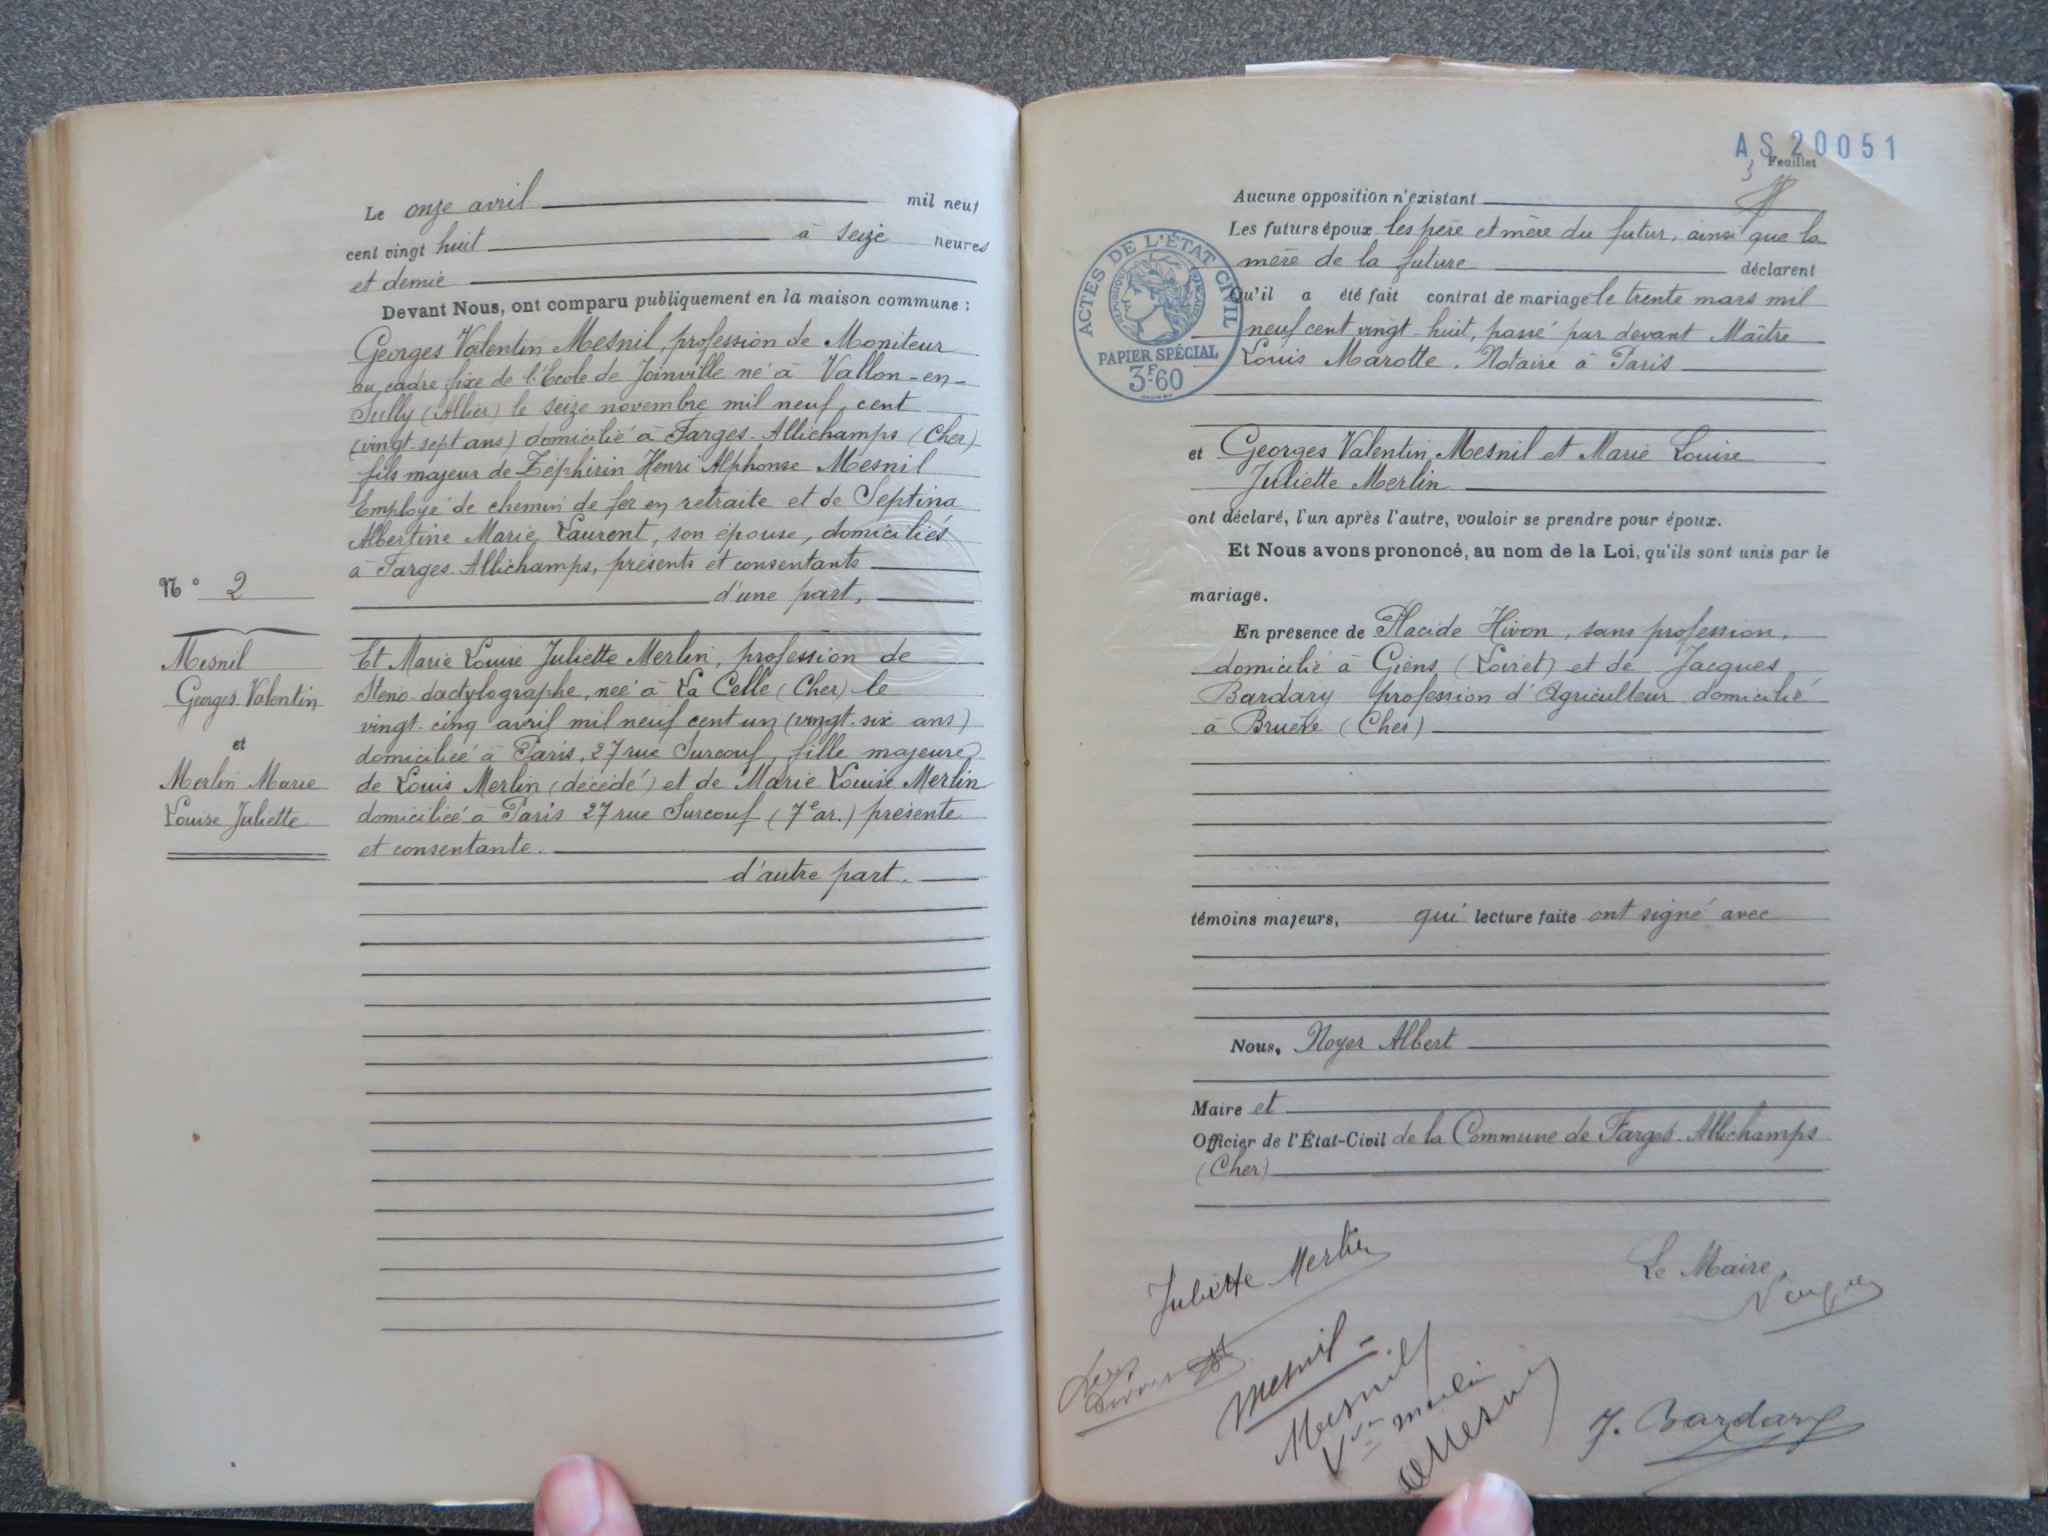 Le onze avril mil neuf
cent vingt huit à seize heures
et demie
Devant Nous, ont comparu publiquement en la maison commune :
Georges Valentin Mesnil, profession de Moniteur
au cadre fixe de l'École de Joinville né à Vallon-en-
Sully (Allier) le seize novembre mil neuf cent
(vingt-sept ans) domicilié à Farges-Allichamps (Cher)
fils majeur de Zéphirin Henri Alphonse Mesnil
Employé de chemin de fer en retraite et de Septina
Albertine Marie Laurent, son épouse, domiciliés
à Farges-Allichamps, présents et consentants
d'une part,
N° 2
Mesnil
Georges Valentin
et
Merlin Marie
Louise Juliette
Et Marie Louise Juliette Merlin, profession de
Sténo-dactylographe, née à La Celle (Cher) le
vingt-cinq avril mil neuf cent un (vingt-six ans)
domiciliée à Paris, 27 rue Surcouf, fille majeure
de Louis Merlin (décédé) et de Marie Louise Merlin
domiciliée à Paris 27 rue Surcouf (7e ar.) présente
et consentante.
d'autre part.
AS 20051
3 Feuillet
Aucune opposition n'existant
Les futurs époux les père et mère du futur, ainsi que la
mère de la future déclarent
Qu'il a été fait contrat de mariage le trente mars mil
neuf cent vingt-huit, passé par devant Maître
Louis Marotte. Notaire à Paris
ACTES DE L'ÉTAT CIVIL
PAPIER SPÉCIAL
3F60
et Georges Valentin Mesnil et Marie Louise
Juliette Merlin
ont déclaré, l'un après l'autre, vouloir se prendre pour époux.
Et Nous avons prononcé, au nom de la Loi, qu'ils sont unis par le
mariage.
En présence de Placide Hivon, sans profession,
domicilié à Giens (Loiret) et de Jacques
Bardary profession d'Agriculteur domicilié
à Bruère (Cher)
témoins majeurs, qui lecture faite ont signé avec
Nous, Noyer Albert
Maire et
Officier de l'État-Civil de la Commune de Farges-Allichamps
(Cher)
Juliette Merlin
Le Maire,
Mesnil
Mesnil
Vve Merlin
Mesnil
J. Bardary